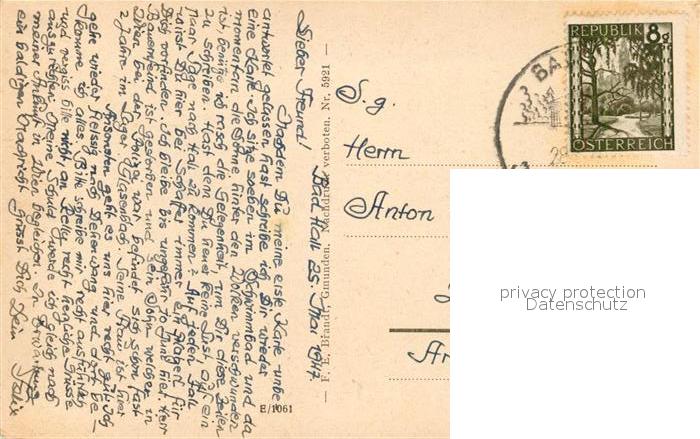 Bad Hall 25. Mai 1947
Lieber Freund!
Nachdem Du meine erste Karte unbe-
antwortet gelassen hast schreibe ich Dir wieder
eine Karte. Ich sitze soeben im Schwimmbad und da
momentan die Sonne hinter den Wolken verschwunden
ist, benütze ich rasch die Gelegenheit, um Dir diese Zeilen
zu schreiben. Hast denn Du heuer keine Lust, auf ein
Paar Tage nach Hall zu kommen? Auf jeden Fall
wirst Du hier bei Schaffer immer ein Platzerl für
Dich vorfinden. Ich bleibe bis ungefähr 10 Juni hier. Herr
Bauernfeind ist gestorben und sein Sohn welcher in
Wien bei der Polizei war befindet sich schon fast
2 Jahre im Lager Glasenbach. Seine Frau ist hier
Ansonsten geht es uns hier recht gut. Ich
gehe wieder fleissig nach und dort be-
komme ich alles. Bitte schreibe mir recht ausführlich
und vergiss bitte nicht, an Nelly recht herzliche Grüsse
auszurichten. Meine Schuld werde ich gleich nach
meiner Ankunft in Wien begleichen. In Erwartung
ein baldigen Nachricht grüsst Dich Dein Felix
E/1061
— F. E. Brandt, Gmunden. Nachdruck verboten. Nr. 5921 —
S. g.
Herrn
Anton
REPUBLIK 8g
ÖSTERREICH
BAD
28
privacy protection
Datenschutz